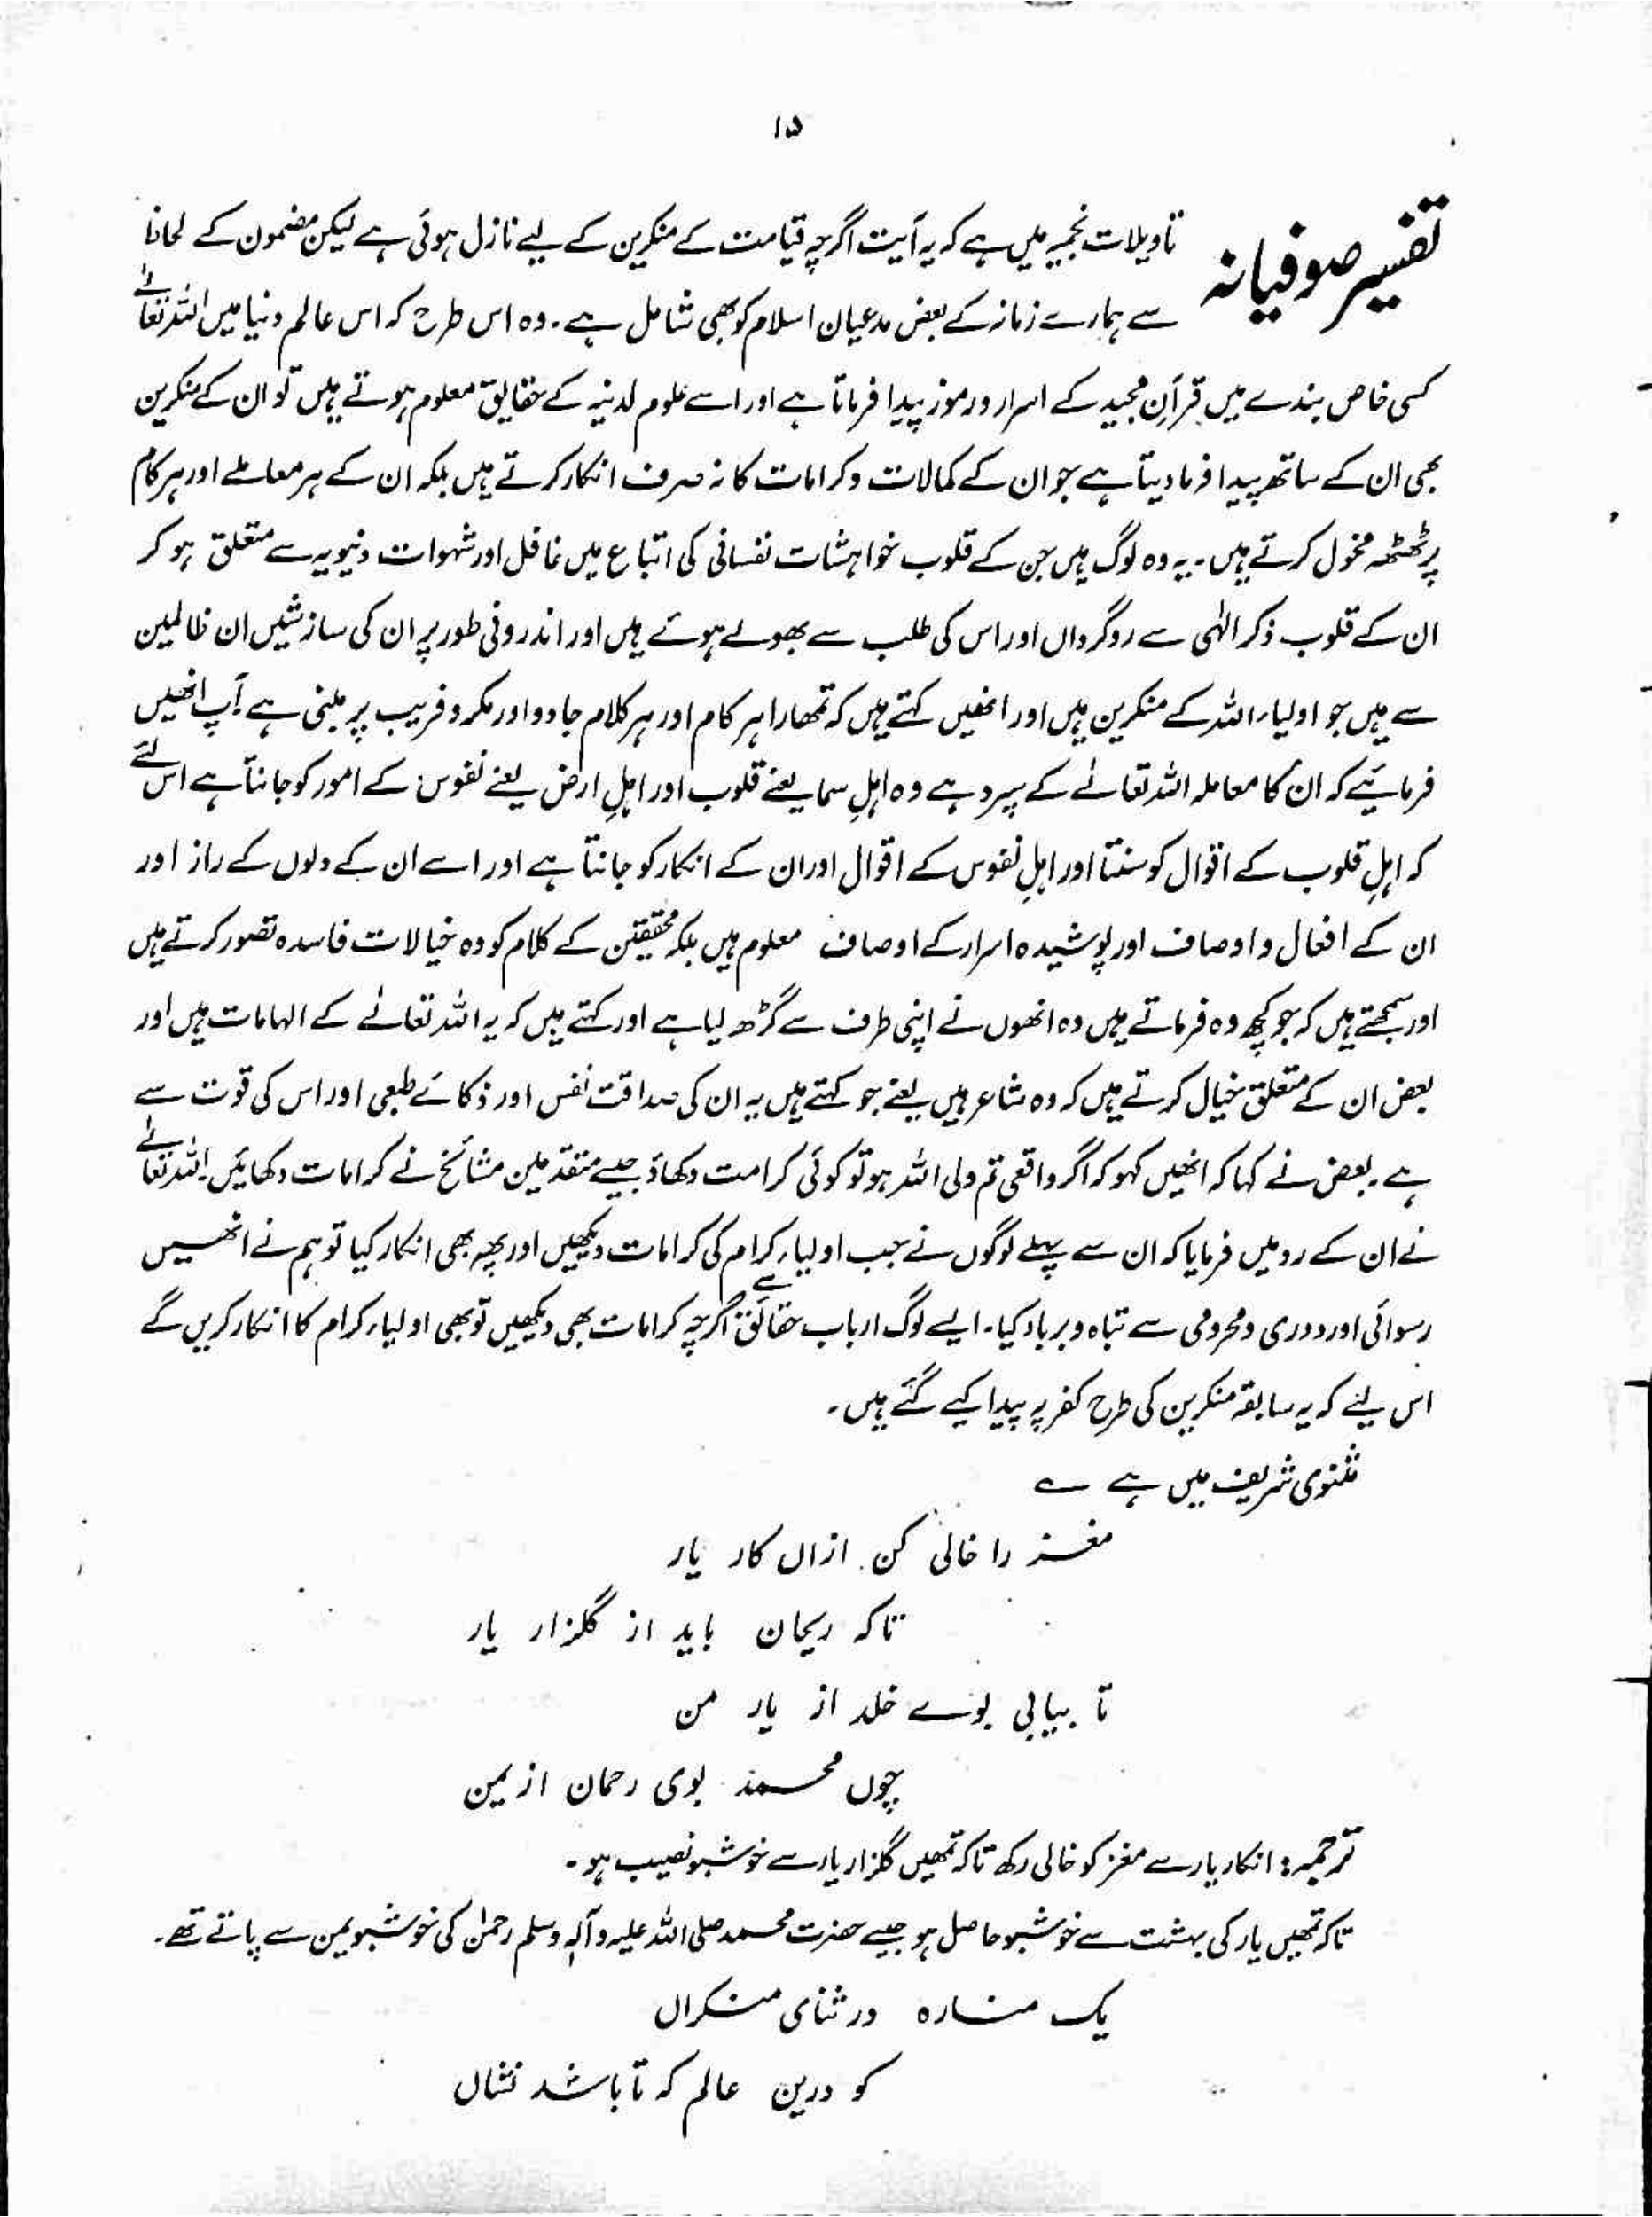 ۱۵
تفسیر صوفیانہ
تاویلات نجمیہ میں ہے کہ یہ آیت اگرچہ قیامت کے منکرین کے لیے نازل ہوئی ہے لیکن مضمون کے لحاظ
سے ہمارے زمانہ کے بعض مدعیان اسلام کو بھی شامل ہے۔ وہ اس طرح کہ اس عالم دنیا میں اللہ تعالےٰ
کسی خاص بندے میں قرآنِ مجید کے اسرار و رموز پیدا فرماتا ہے اور اسے علوم لدنیہ کے حقایق معلوم ہوتے ہیں تو ان کے منکرین
بھی ان کے ساتھ پیدا فرما دیتا ہے جو ان کے کمالات و کرامات کا نہ صرف انکار کرتے ہیں بلکہ ان کے ہر معاملے اور ہر کام
پر ٹھٹھہ مخول کرتے ہیں۔ یہ وہ لوگ ہیں جن کے قلوب خواہشات نفسانی کی اتباع میں غافل اور شہوات دنیویہ سے متعلق ہو کر
ان کے قلوب ذکر الٰہی سے روگرداں اور اس کی طلب سے بھولے ہوئے ہیں اور اندرونی طور پر ان کی سازشیں ان ظالمین
سے ہیں جو اولیاء اللہ کے منکرین ہیں اور انھیں کہتے ہیں کہ تمھارا ہر کام اور ہر کلام جادو اور مکر و فریب پر مبنی ہے آپ انھیں
فرمائیے کہ ان کا معاملہ اللہ تعالےٰ کے سپرد ہے وہ اہلِ سما یعنے قلوب اور اہلِ ارض یعنے نفوس کے امور کو جانتا ہے اس لئے
کہ اہلِ قلوب کے اقوال کو سنتا اور اہلِ نفوس کے اقوال اور ان کے انکار کو جانتا ہے اور اسے ان کے دلوں کے راز اور
ان کے افعال و اوصاف اور پوشیدہ اسرار کے اوصاف معلوم ہیں بلکہ محققین کے کلام کو وہ خیالات فاسدہ تصور کرتے ہیں
اور سمجھتے ہیں کہ جو کچھ وہ فرماتے ہیں وہ انھوں نے اپنی طرف سے گڑھ لیا ہے اور کہتے ہیں کہ یہ اللہ تعالےٰ کے الہامات ہیں اور
بعض ان کے متعلق خیال کرتے ہیں کہ وہ شاعر ہیں یعنے جو کہتے ہیں یہ ان کی صداقت نفس اور ذکائے طبعی اور اس کی قوت سے
ہے۔ بعض نے کہا کہ انھیں کہو کہ اگر واقعی تم ولی اللہ ہو تو کوئی کرامت دکھاؤ جیسے متقدمین مشائخ نے کرامات دکھائیں۔ اللہ تعالےٰ
نے ان کے رد میں فرمایا کہ ان سے پہلے لوگوں نے جب اولیاء کرام کی کرامات دیکھیں اور پھر بھی انکار کیا تو ہم نے انھیں
رسوائی اور دوری و محرومی سے تباہ و برباد کیا۔ ایسے لوگ ارباب حقائق سے اگرچہ کرامات بھی دیکھیں تو بھی اولیاء کرام کا انکار کریں گے
اس لئے کہ یہ سابقہ منکرین کی طرح کفر پر پیدا کیے گئے ہیں۔
مثنوی شریف میں ہے ؎
مغز را خالی کن ازاں کار یار
تا کہ ریحان باید از گلزار یار
تا بیابی بوے خلد از یار من
چوں محمد بوی رحمان از یمن
ترجمہ: انکار یار سے مغز کو خالی رکھ تاکہ تمھیں گلزار یار سے خوشبو نصیب ہو۔
تاکہ تمھیں یار کی بہشت سے خوشبو حاصل ہو جیسے حضرت محمد صلی اللہ علیہ وآلہ وسلم رحمٰن کی خوشبو یمن سے پاتے تھے۔
یک منارہ در ثنای منکراں
کو درین عالم کہ تا باشد نشاں